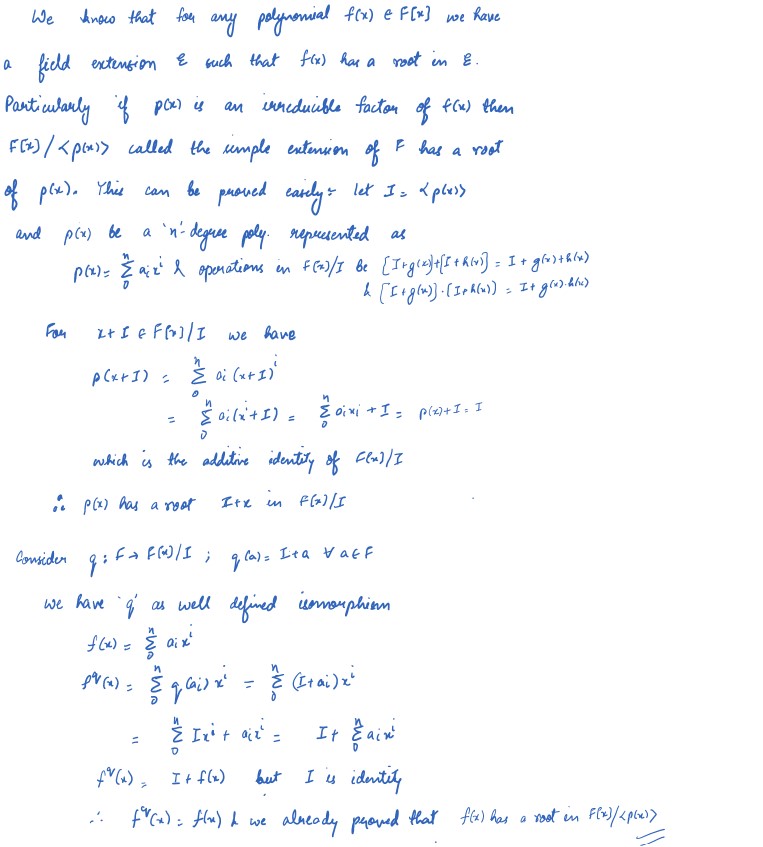 We know that for any polynomial f(x) ∈ F[x] we have
a field extension E such that f(x) has a root in E.
Particularly if p(x) is an irreducible factor of f(x) then
F[x]/<p(x)> called the simple extension of F has a root
of p(x). This can be proved easily: let I = <p(x)>
and p(x) be a 'n'-degree poly. represented as
p(x) = Σ₀ⁿ aᵢxⁱ & operations in F[x]/I be [I+g(x)]+[I+h(x)] = I+g(x)+h(x)
& [I+g(x)]·[I+h(x)] = I+g(x)·h(x)
For x+I ∈ F[x]/I we have
p(x+I) = Σ₀ⁿ aᵢ(x+I)ⁱ
= Σ₀ⁿ aᵢ(xⁱ+I) = Σ₀ⁿ aᵢxⁱ + I = p(x)+I = I
which is the additive identity of F[x]/I
∴ p(x) has a root I+x in F[x]/I
Consider q: F→F[x]/I ; q(a) = I+a ∀ a∈F
we have 'q' as well defined isomorphism
f(x) = Σ₀ⁿ aᵢxⁱ
f^q(x) = Σ₀ⁿ q(aᵢ)xⁱ = Σ₀ⁿ (I+aᵢ)xⁱ
= Σ₀ⁿ Ixⁱ + aᵢxⁱ = I + Σ₀ⁿ aᵢxⁱ
f^q(x) = I+f(x) but I is identity
∴ f^q(x) = f(x) & we already proved that f(x) has a root in F[x]/<p(x)>